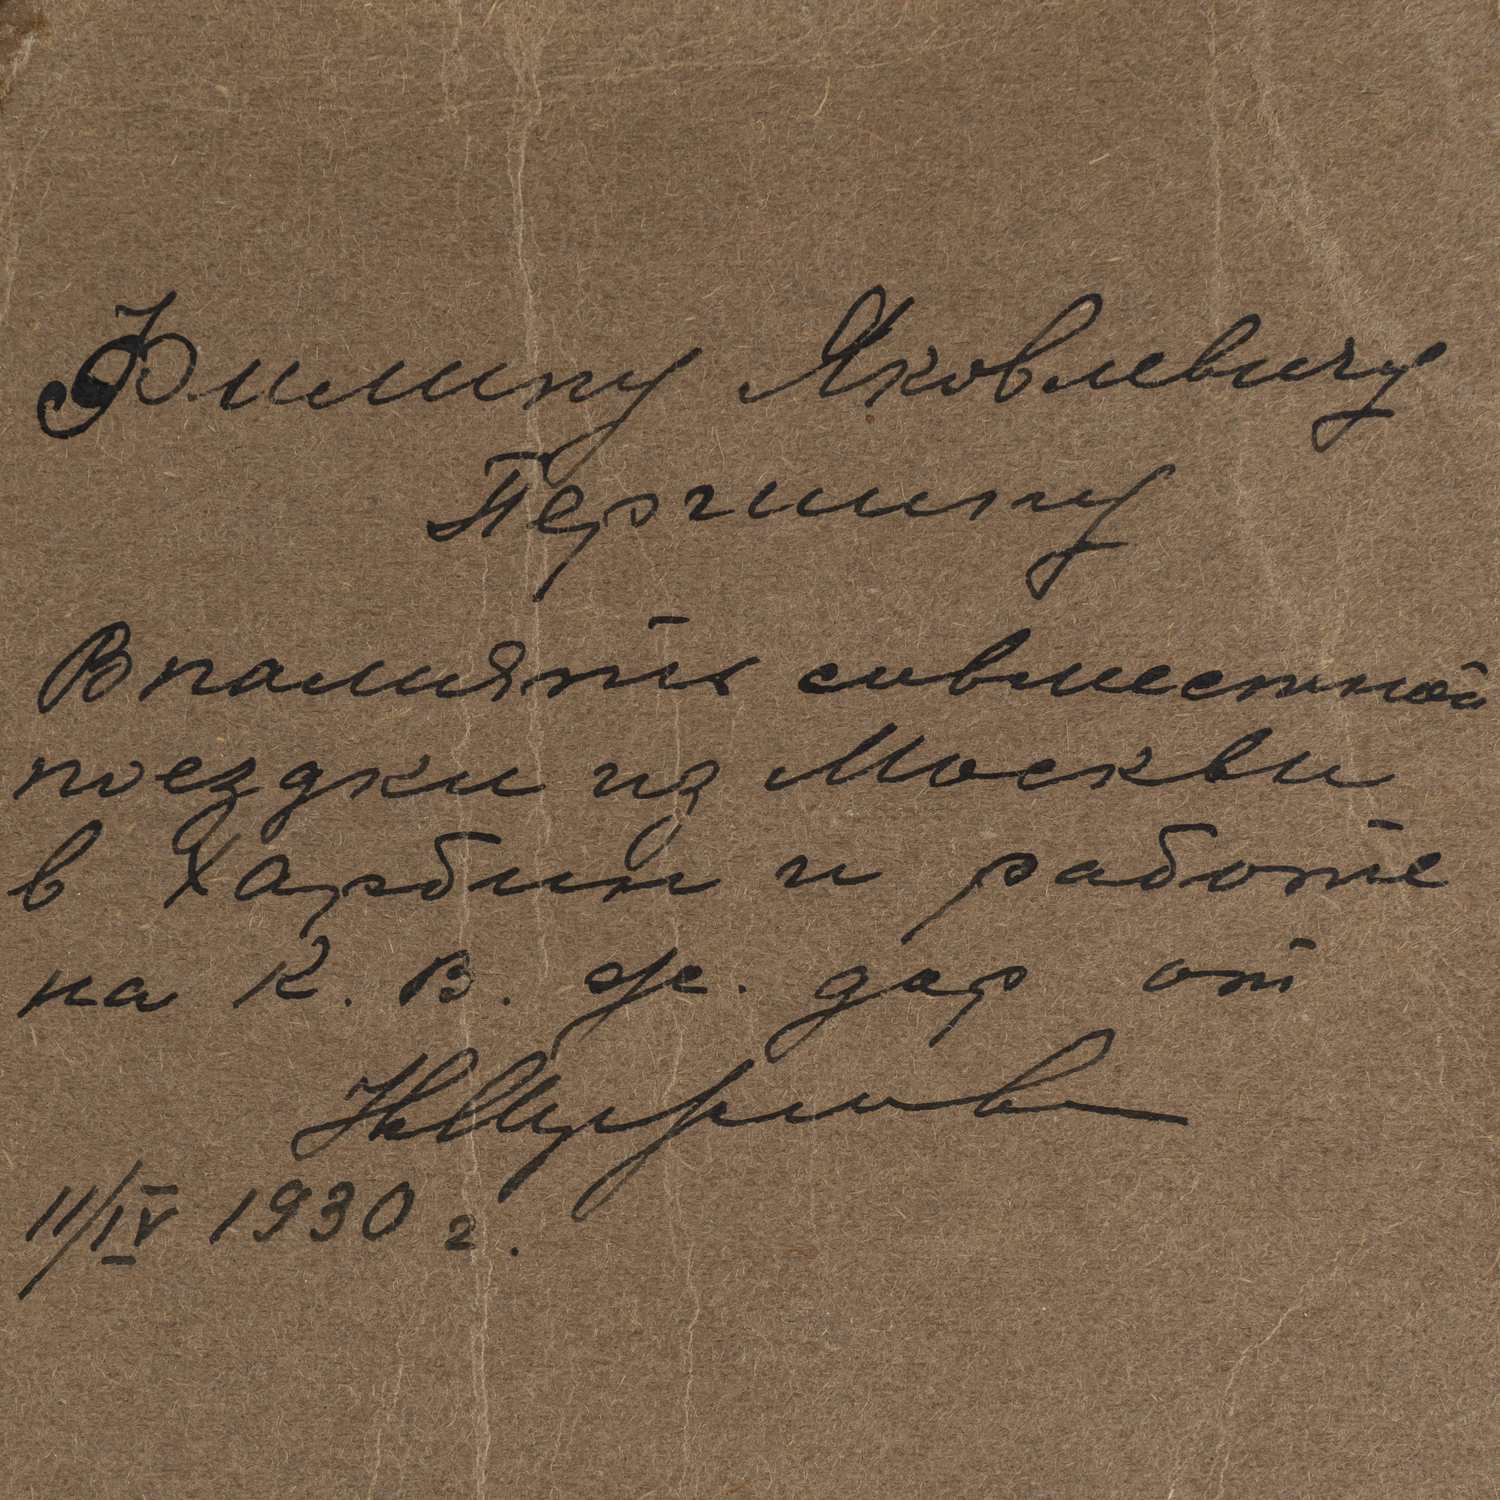 Филипу Яковлевичу
Пергишпу
В память совместной
поездки из Москвы
в Харбин и работе
на К. В. ж. дар от
11/IV 1930 г.